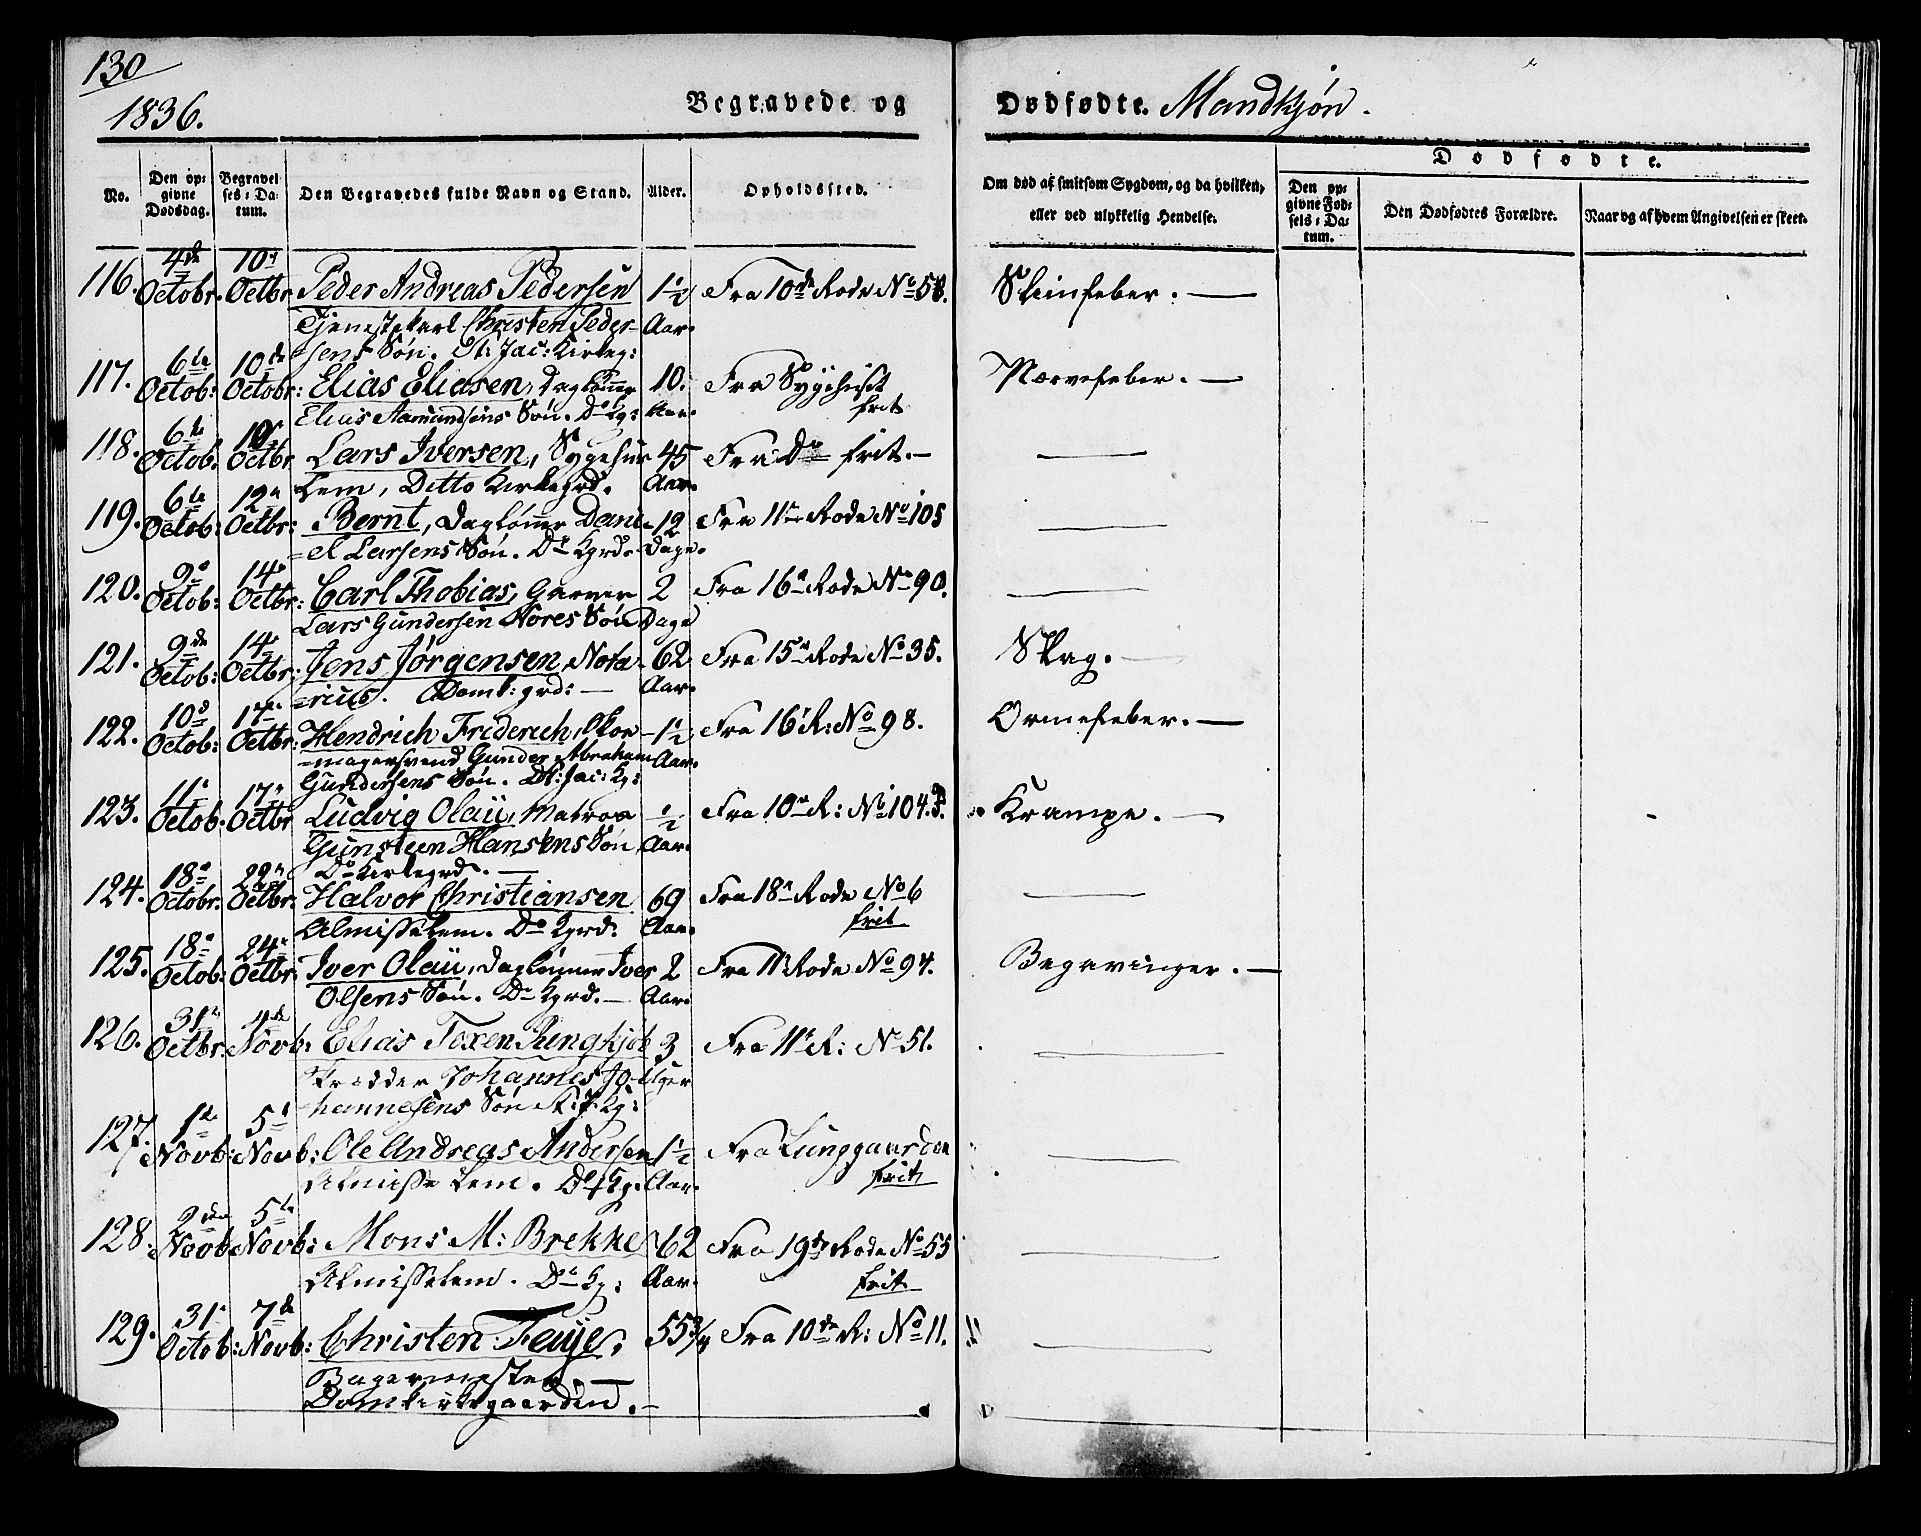 130
1836.
Begravede og Dødfødte. Mandkjøn.
No.
Den opgivne Dødsdag.
Begravelses-Datum.
Den Begravedes fulde Navn og Stand.
Alder.
Opholdssted.
Om død af smitsom Sygdom, og da hvilken, eller ved ulykkelig Hendelse.
Dødfødte.
Den opgivne Fødsels-Datum.
Den Dødfødtes Forældre.
Naar og af hvem Angivelsen er skeet.
116. 4de Octobr. 10 Octbr Peder Andreas Pedersen 1½ Aar. Fra 10de Rode No 58. Sliimfeber. —
Tjenestekarl Christen Peder-
sens Søn. St: Jac: Kirkeg:
117. 6te Octob: 10de Octobr: Elias Eliasen, Dagløn̄er 10. Aar. Fra Sygehuset frit Nervefeber. —
Elias Aamundsens Søn. Do Kg:
118. 6te Octob. 10 Octbr Lars Iversen, Sygehus 45 Aar. Fra Do frit. — —
Lem, Ditto Kirkegrd.
119. 6te Octob: 12 Octbr: Bernt, Dagløn̄er Dani- 12 Dage. Fra 11te Rode No 105 —
=el Larsens Søn. Do Kgrd.
120. 9 Octob: 14 Octbr: Carl Thobias, Garver 2 Dage Fra 16 Rode No 90. —
Lars Gundersen Hores Søn
121. 9de Octob: 14 Octbr: Jens Jørgensen, Nota- 62 Aar. Fra 15 Rode No 35. Slag. —
=rius. Domk: grd: —
122. 10 Octob: 17 Octbr: Hendrich Friderich, Skoe- 1½ Aar. Fra 16 R: No 98. Ormefeber. —
=magersvend Gunder Abraham
Gundersens Søn. St: Jac: Kg:
123. 11 Octob. 17 Octbr Ludvig Olaü, Matros ½ Aar. Fra 10 R: No 104. Krampe. —
Gunsteen Hansens Søn,
Do Kirkegrd. —
124. 18 Octobr. 22 Octbr. Halvor Christiansen 69 Aar. Fra 18 Rode No 6 frit —
Almisselem. Do Kgrd:
125. 18 Octob: 24 Octbr. Iver Olaü, Dagløn̄er Iver 2 Aar. Fra 11 Rode No 94. Begavinger. —
Olsens Søn. Do Kgrd. —
126. 31 Octbr. 4de Novb: Elias Toxen 3 Uger Fra 11 R: No 51. —
Skrædder Johannes Jo-
hannesens Søn St: J: Kg:
127. 1te Novb: 5 Novb: Ole Andreas Andersen 1½ Aar. Fra Lunggaarden frit —
Almisse Lem. Do Kg.
128. 2den Novb 5te Novb: Mons M: Brekke 62 Aar. Fra 19de Rode No 55 frit —
Almisselem. Do Kg:
129. 31 Octob: 7de Novb: Christen Faye, 55¾ Fra 10de R: No 11. —
Bagermester, —
Domkirkegaarden. —